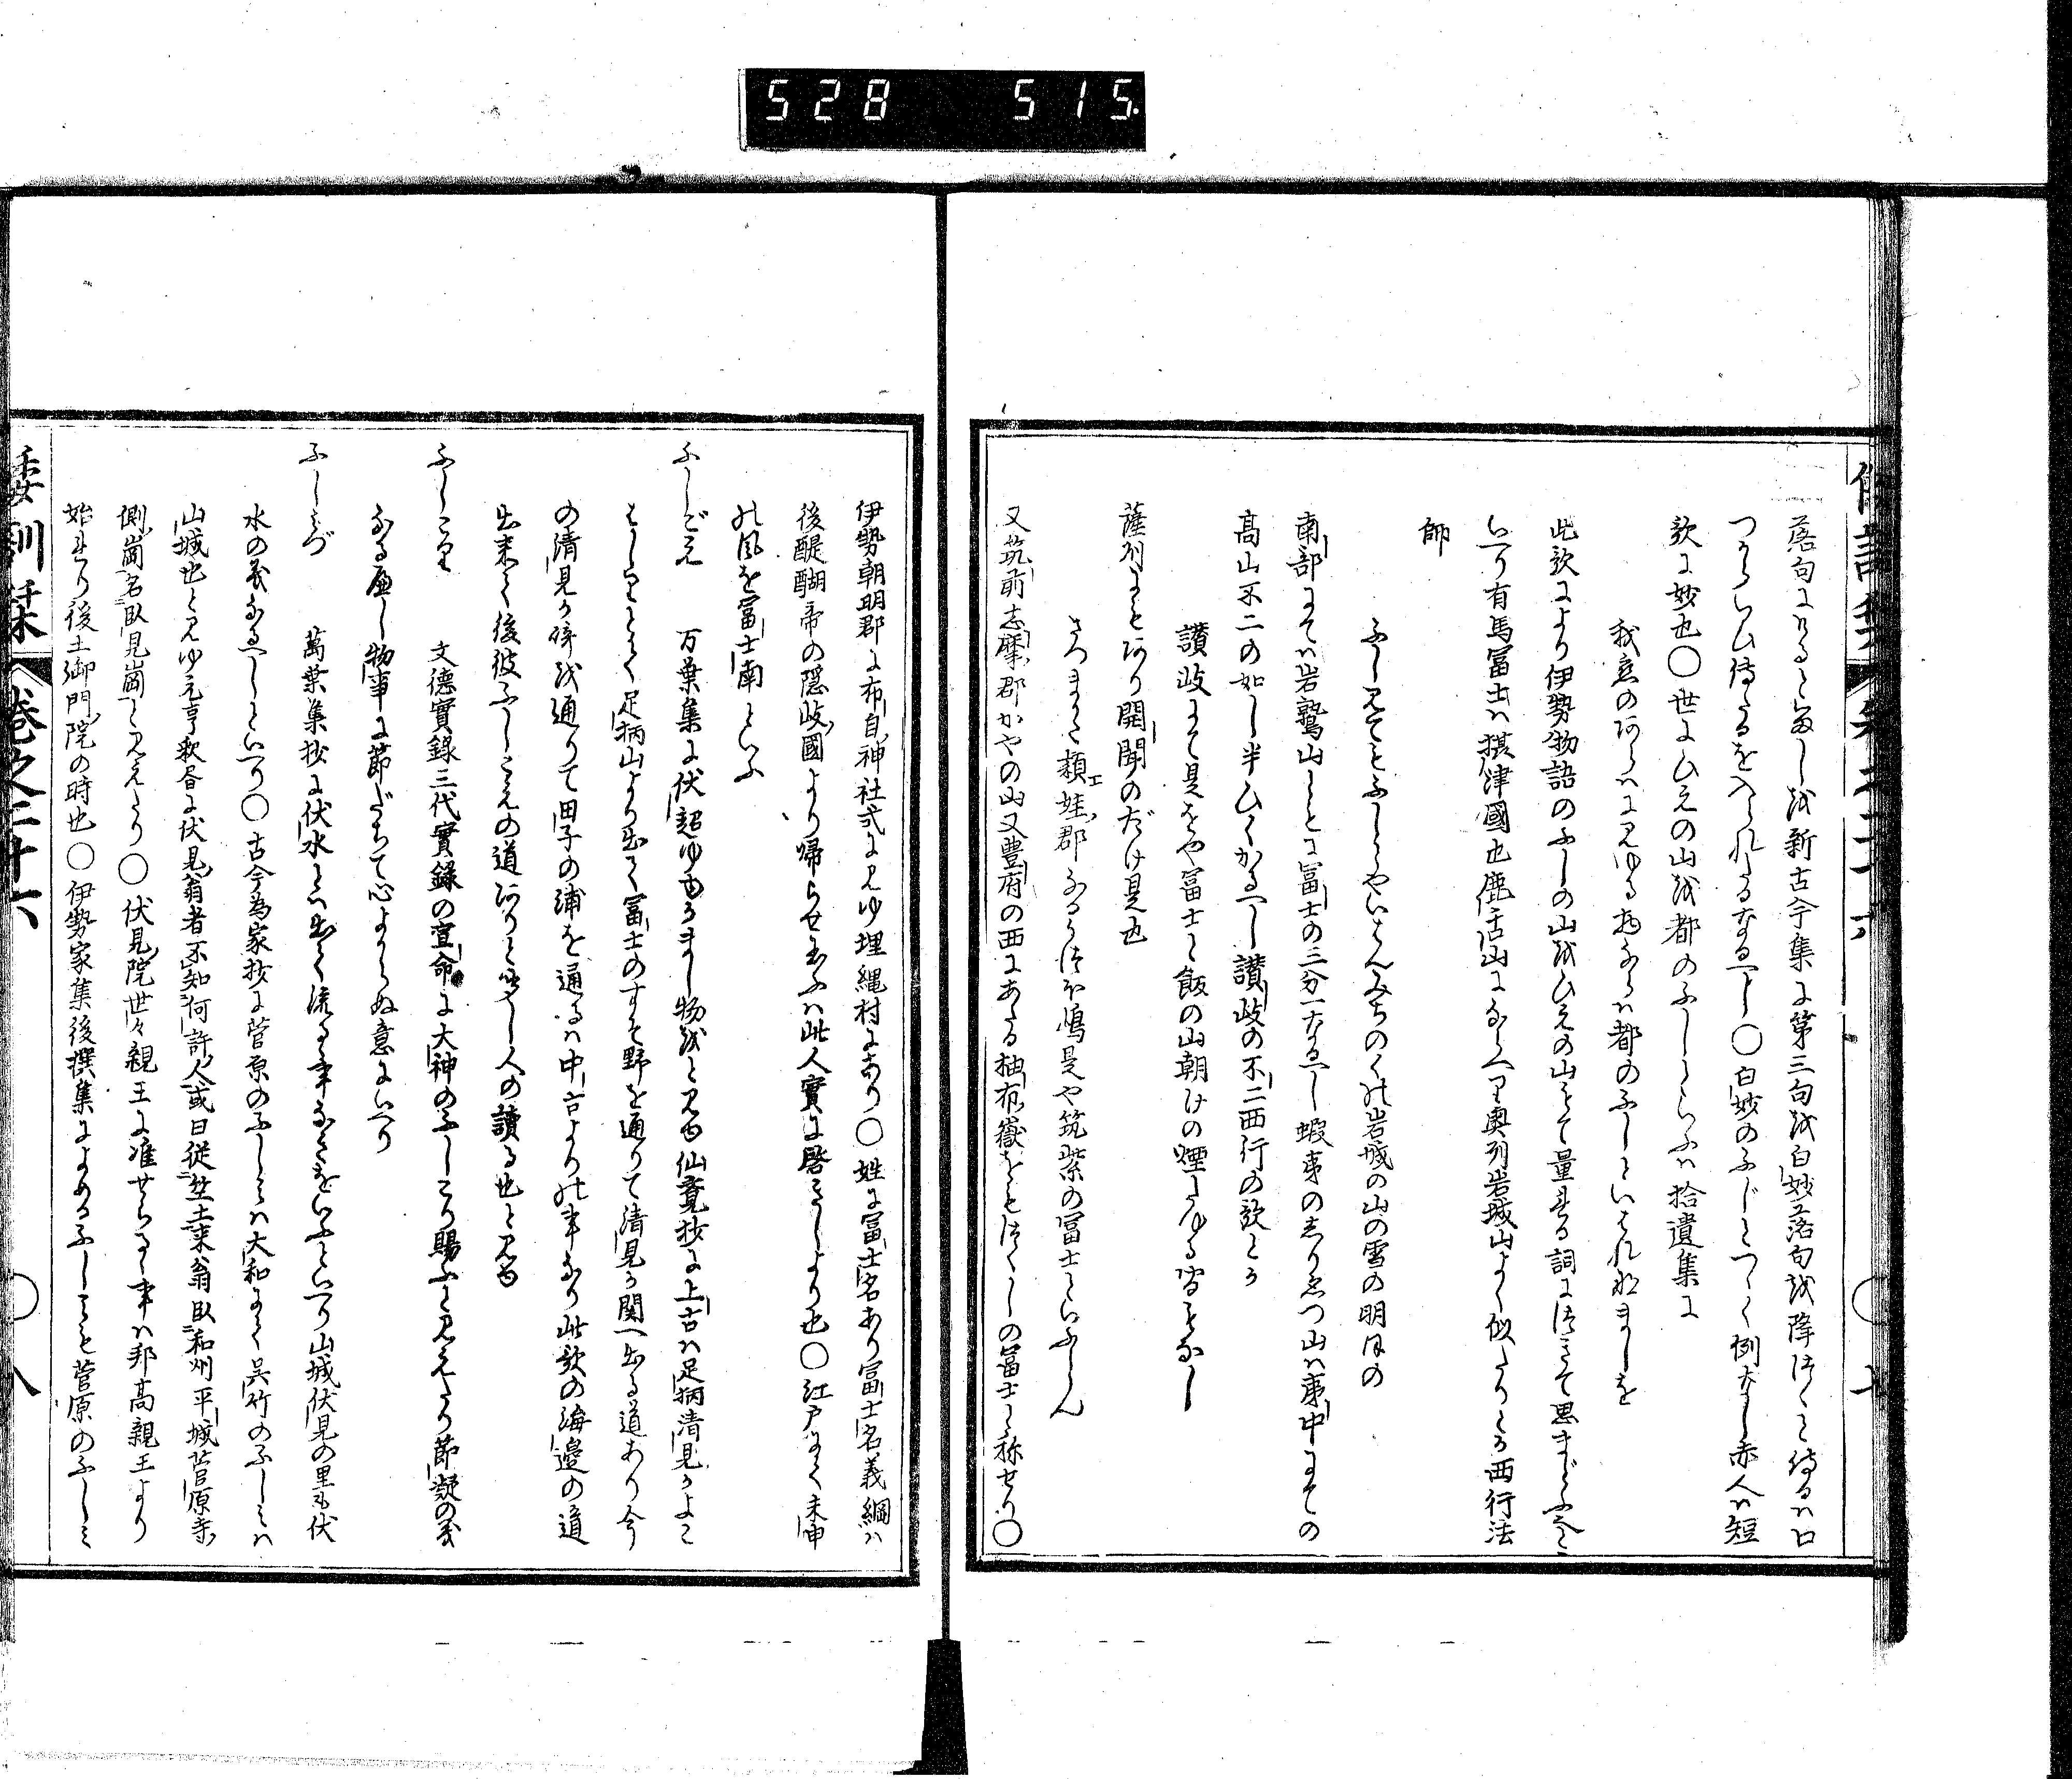 528 515.
落句にけるとなりしを新古今集に第三句を白妙落句を降つゝと侍るハロ
つからひ侍たるを入られたるなるへし〇白妙のふじとつゝく例なし赤人ハ短
歌に妙也〇世にひえの山を都のふしといふハ拾遺集に
我恋のあらハにみゆる物ならハ都のふしといはれなましを
此歌により伊勢物語のふしの山をひえの山もて量れる詞につきて思まどふへ
いへり有馬冨士ハ摂津國也鹿舌山にならへり奥州岩城山よく似たりとそ西行法
師
ふしみてもふしとやいはんみちのくの岩城の山の雪の明ほの
南部にてハ岩鷲山もとに冨士の三分一なるへし蝦夷の志りゑつ山ハ夷中にての
高山不二の如し半ひくかるへし讃岐の不二西行の歌とそ
讃岐にて是をや冨士と飯の山朝けの煙たゆる間もなし
薩州にもあり開聞のだけ是也
さつまかた頴娃郡なるうつほ嶋是や筑紫の冨士といふらん
又筑前志摩郡かやの山又豊府の西にあたる柚布嶽をもつくしの冨士と称せり〇
伊勢朝明郡に布自神社式にみゆ埋縄村にあり〇姓に冨士名あり冨士名義綱ハ
後醍醐帝の隠岐國より帰らせ玉ふハ此人實に啓きしより也〇江戸にて未申
の風を冨士南といふ
ふしごえ　万葉集に伏超ゆゆかまし物をと見ゆ仙覚抄に上古ハ足柄清見かよこ
はしりとて足柄山より出て冨士のすそ野を通りて清見か関へ出る道あり今
の清見か碕を通りて田子の浦を通るハ中古よりの事なり此歌の海邊の道
出来て後彼ふしこえの道ありと聞し人の讀る也と見ゆ
ふしこり　文徳實録三代實録の宣命に大神のふしこり賜ふと見えたり節凝の義
なる歟し物事に節だちて心よからぬ意にいへり
ふしみづ　萬葉集抄に伏水とハ出て流るゝ事なきをいふといへり山城伏見の里も伏
水の義なるへしといへり〇古今為家抄に菅原のふしミハ大和にて呉竹のふしミハ
山城也と見ゆ元亨釈書に伏見翁者不知何許人或曰従竺土来翁臥和州平城菅原寺
側崗名臥見崗と見えたり〇伏見院世々親王に准せらるゝ事ハ邦高親王より
始まり後土御門院の時也〇伊勢家集後撰集によめるふしミも菅原のふしミ
倭訓栞　巻之二十六　〇八